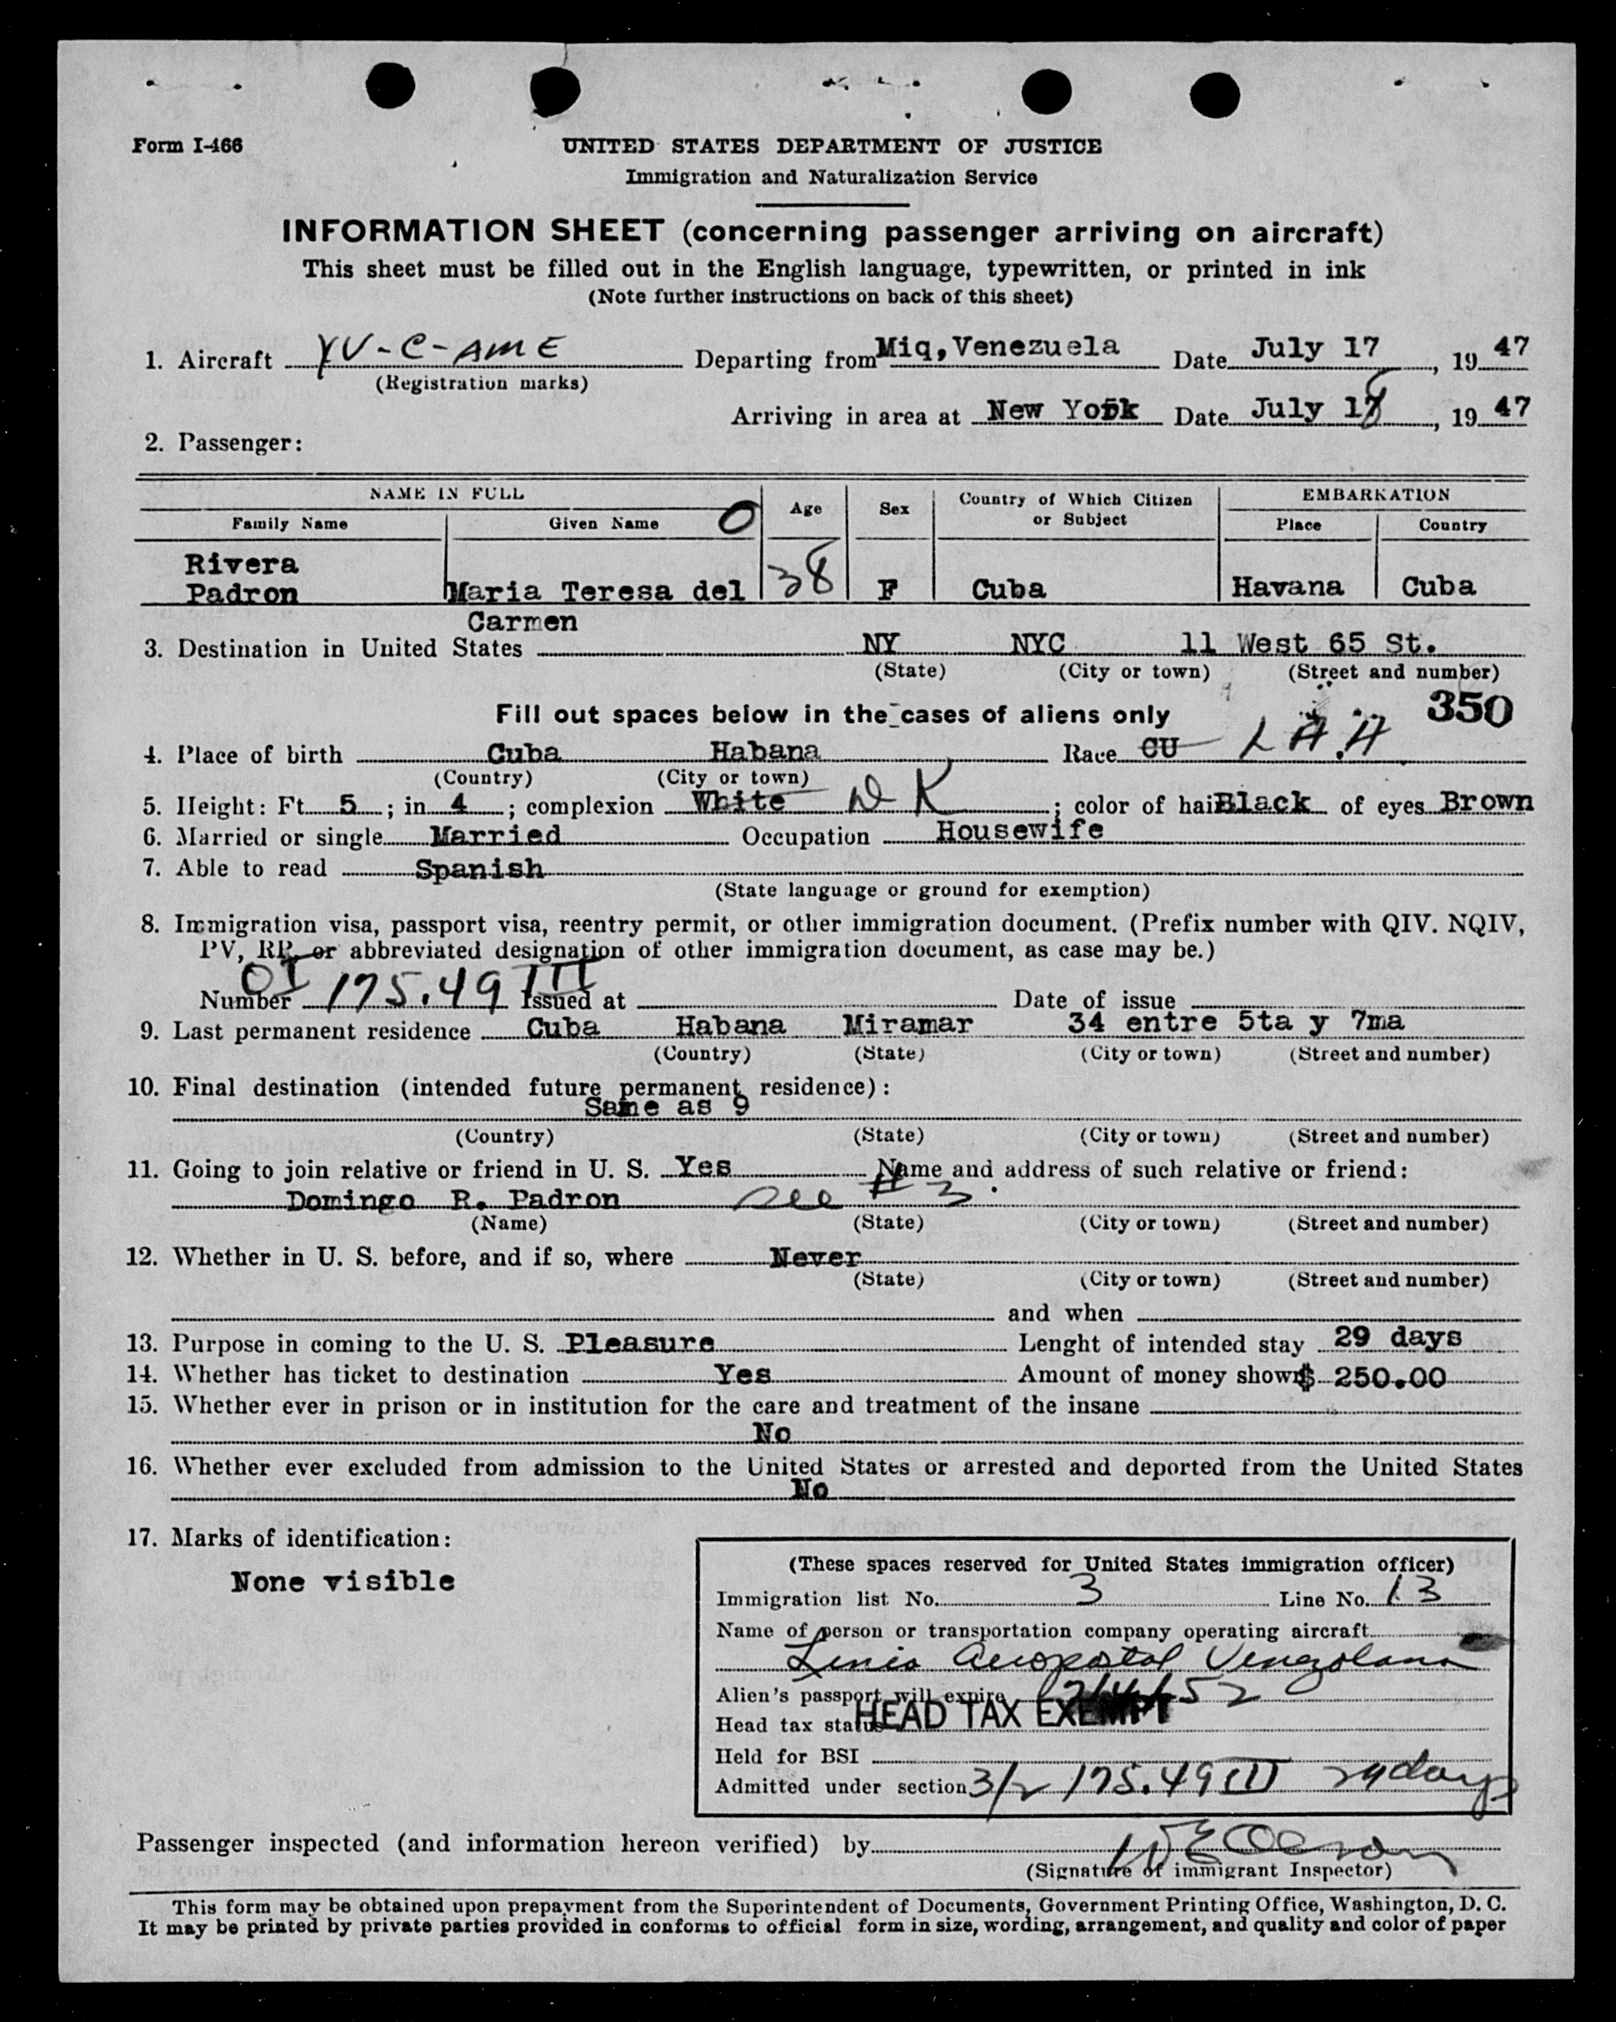 Form I-466
UNITED STATES DEPARTMENT OF JUSTICE
Immigration and Naturalization Service
INFORMATION SHEET (concerning passenger arriving on aircraft)
This sheet must be filled out in the English language, typewritten, or printed in ink
(Note further instructions on back of this sheet)
1. Aircraft YV-C-AME Departing from Miq, Venezuela Date July 17, 19 47
(Registration marks)
Arriving in area at New York Date July 18, 19 47
2. Passenger:
NAME IN FULL Age Sex Country of Which Citizen or Subject EMBARKATION
Family Name Given Name O Place Country
Rivera
Padron Maria Teresa del 38 F Cuba Havana Cuba
Carmen
3. Destination in United States NY NYC 11 West 65 St.
(State) (City or town) (Street and number)
350
Fill out spaces below in the cases of aliens only
4. Place of birth Cuba Habana Race CU L A.A
(Country) (City or town)
5. Height: Ft. 5; in. 4; complexion White DK; color of hair Black of eyes Brown
6. Married or single Married Occupation Housewife
7. Able to read Spanish
(State language or ground for exemption)
8. Immigration visa, passport visa, reentry permit, or other immigration document. (Prefix number with QIV. NQIV,
PV, RP, or abbreviated designation of other immigration document, as case may be.)
Number OI 175.49 III Issued at Date of issue
9. Last permanent residence Cuba Habana Miramar 34 entre 5ta y 7ma
(Country) (State) (City or town) (Street and number)
10. Final destination (intended future permanent residence):
Same as 9
(Country) (State) (City or town) (Street and number)
11. Going to join relative or friend in U. S. Yes Name and address of such relative or friend:
Domingo R. Padron see # 3.
(Name) (State) (City or town) (Street and number)
12. Whether in U. S. before, and if so, where Never
(State) (City or town) (Street and number)
and when
13. Purpose in coming to the U. S. Pleasure Lenght of intended stay 29 days
14. Whether has ticket to destination Yes Amount of money shown $ 250.00
15. Whether ever in prison or in institution for the care and treatment of the insane
No
16. Whether ever excluded from admission to the United States or arrested and deported from the United States
No
17. Marks of identification:
None visible
(These spaces reserved for United States immigration officer)
Immigration list No. 3 Line No. 13
Name of person or transportation company operating aircraft
Linea Aeropostal Venezolana
Alien's passport will expire 52
Head tax status HEAD TAX EXEMPT
Held for BSI
Admitted under section 3/2 175.49 III 29 days
Passenger inspected (and information hereon verified) by
(Signature of immigrant Inspector)
This form may be obtained upon prepayment from the Superintendent of Documents, Government Printing Office, Washington, D. C.
It may be printed by private parties provided in conforms to official form in size, wording, arrangement, and quality and color of paper